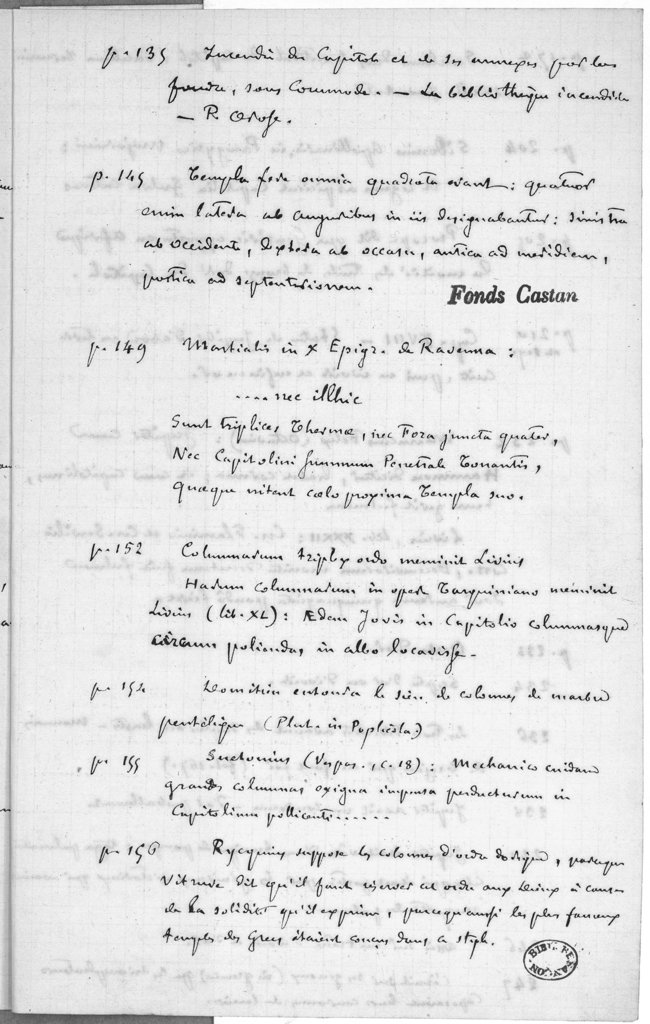 p. 135 Incendie du Capitole et de ses annexes par la
foudre, sous Commode. — La bibliothèque incendiée
— P. Orose.
p. 145 Templa fere omnia quadrata erant: quatuor
enim latera ab auguribus in iis designabantur: sinistra
ab occidenti, dextera ab occasu, antica ad meridiem,
postica ad septentrionem.
Fonds Castan
p. 149 Martialis in X Epigr. de Ravenna :
.... nec illhic
Sunt triplices Thermæ, nec Fora juncta quater,
Nec Capitolini summum Penetrale Tonantis,
Quæque nitent cœlo proxima Templa suo.
p. 152 Columnarum triplex ordo meminit Livius
Harum columnarum in opere Tarquiniano meminit
Livius (lib. XL): Ædem Jovis in Capitolio columnasque
circum poliendas in albo locavisse.
p. 154 Domitien entoura le de colonnes de marbre
pentélique (Plut. in Poplicola)
p. 155 Suetonius (Vespas. c. 18) : Mechanico cuidam
grandes columnas exigua impensa perducturum in
Capitolium pollicenti......
p. 156 Rycquius suppose les colonnes d'ordre dorique, parceque
Vitruve dit qu'il faut réserver cet ordre aux Dieux à cause
de la solidité qu'il exprime, parce qu'aussi les plus fameux
temples des Grecs étaient conçus dans ce style.
BIBL. BESANÇON